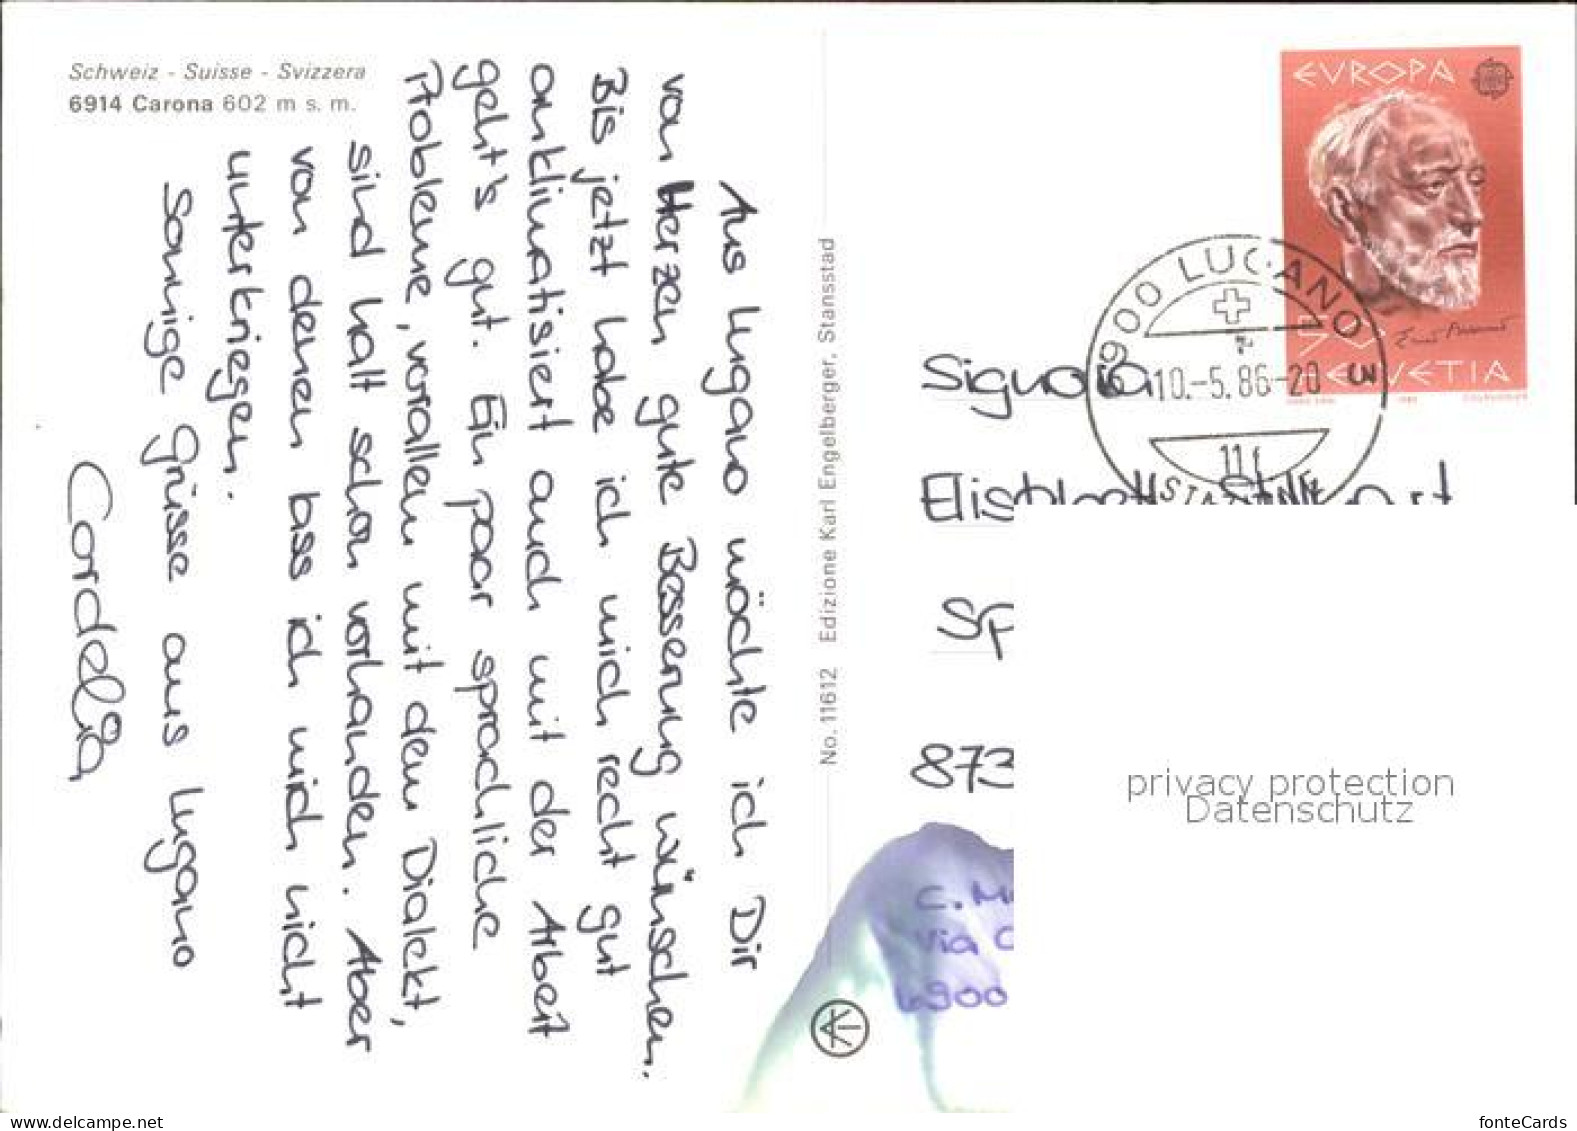 Schweiz - Suisse - Svizzera
6914 Carona 602 m s. m.
Aus Lugano möchte ich Dir
von Herzen gute Besserung wünschen.
Bis jetzt habe ich mich recht gut
anklimatisiert auch mit der Arbeit
geht's gut. Ein paar sprachliche
Probleme, vorallem mit dem Dialekt,
sind halt schon vorhanden. Aber
von denen lass ich mich nicht
unterkriegen.
Sonnige Grüsse aus Lugano
Cordelia
No. 11612 Edizione Karl Engelberger, Stansstad
EVROPA
50
HELVETIA
6900 LUGANO 3
10.-5.86-20
Signora
873
C.
Via
6900
privacy protection
Datenschutz
www.delcampe.net
fonteCards